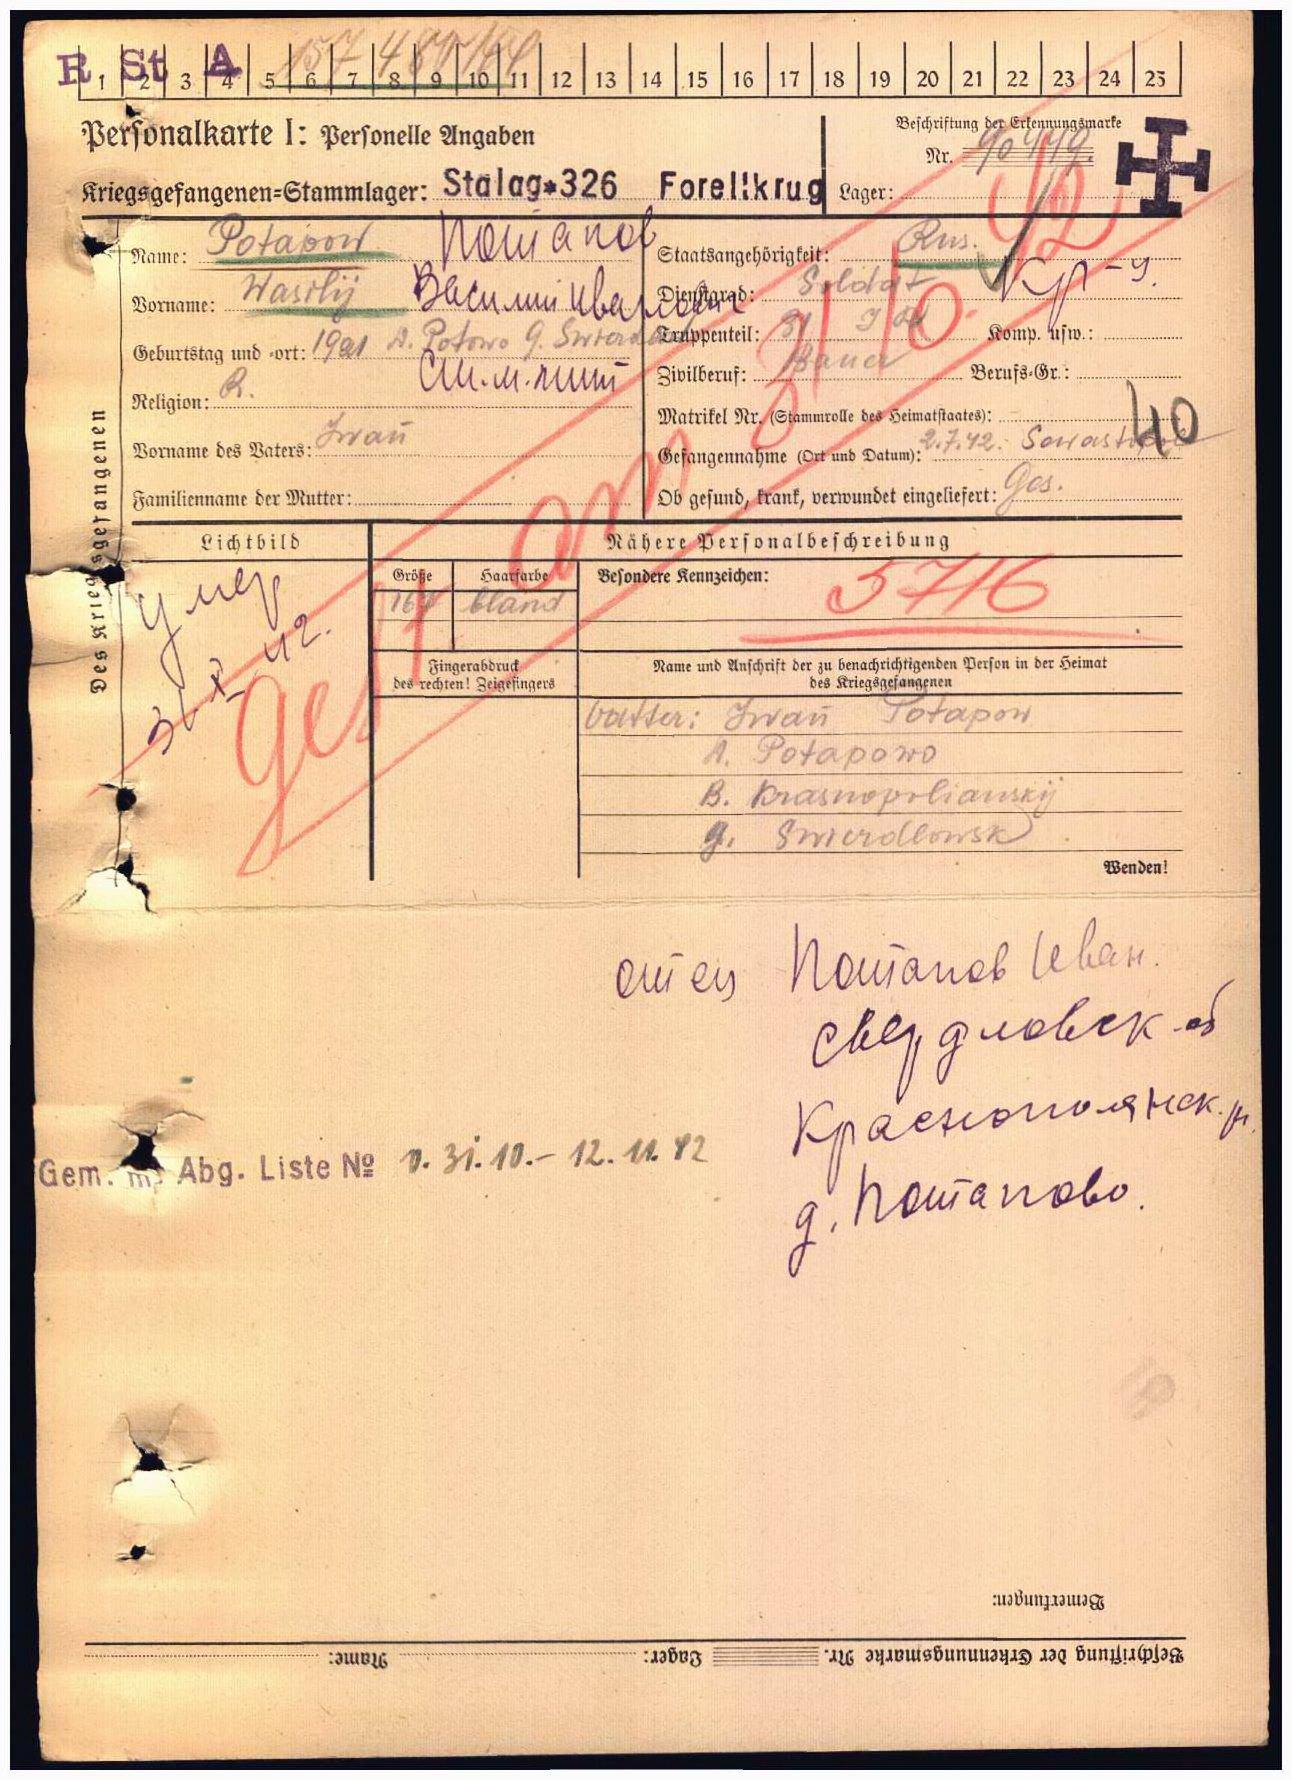 R St A
1 2 3 4 5 6 7 8 9 10 11 12 13 14 15 16 17 18 19 20 21 22 23 24 25
Personalkarte I: Personelle Angaben
Kriegsgefangenen=Stammlager: Stalag 326 Forellkrug
Beschriftung der Erkennungsmarke
Nr. 90449.
Lager:
Des Kriegsgefangenen
Name: Potapow Потапов
Vorname: Wasilij Василий Иванович
Geburtstag und -ort: 1921 D. Potowo G.
Religion: R.
Vorname des Vaters: Iwan
Familienname der Mutter:
Staatsangehörigkeit: Rus.
Кр-ц.
Dienstgrad: Soldat
Truppenteil: Komp. usw.:
Zivilberuf: Bauer Berufs-Gr.:
Matrikel Nr. (Stammrolle des Heimatstaates):
40
Gefangennahme (Ort und Datum): 2.7.42. Sewastopol
Ob gesund, krank, verwundet eingeliefert: Ges.
gest am 31/10. 42
Lichtbild
умер
31 X 42.
Nähere Personalbeschreibung
Größe Haarfarbe Besondere Kennzeichen:
bland
5716
Fingerabdruck
des rechten! Zeigefingers
Name und Anschrift der zu benachrichtigenden Person in der Heimat
des Kriegsgefangenen
Vatter: Iwan Potapow
D. Potapowo
B. Krasnopolianskij
g. Swerdlowsk
Wenden!
отец Потапов Иван.
Свердловск-об
Краснополянск. р.
д. Потапово.
Gem. m. Abg. Liste № v. 31.10.- 12.11.42
Bemerkungen:
Beschriftung der Erkennungsmarke Nr. Lager: Name: